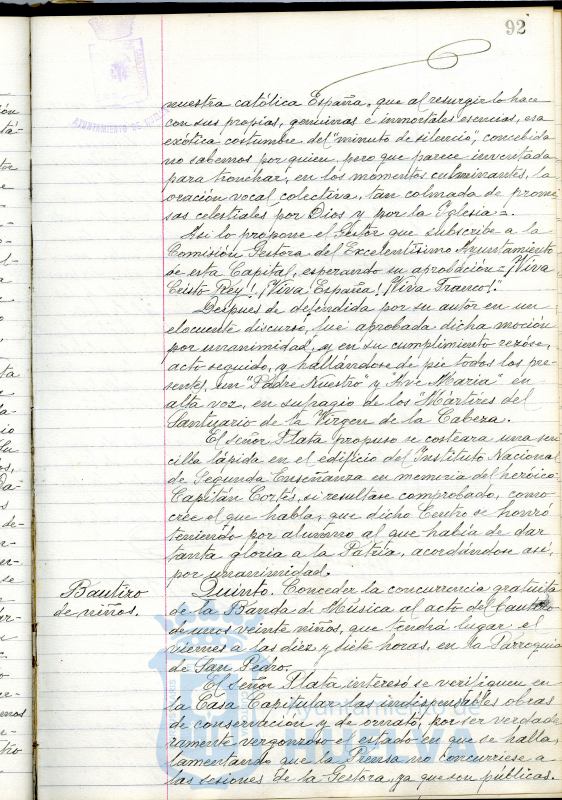 92
AYUNTAMIENTO DE
nuestra católica España, que al resurgir lo hace
con sus propias, genuinas e inmortales esencias, esa
exótica costumbre del "minuto de silencio", concebida
no sabemos por quien, pero que parece inventada
para tronchar, en los momentos culminantes, la
oración vocal colectiva, tan colmada de prome-
sas celestiales por Dios y por la Iglesia=.
Asi lo propone el Gestor que subscribe a la
Comisión Gestora del Excelentísimo Ayuntamiento
de esta Capital, esperando su aprobación=¡Viva
Cristo Rey!! ¡Viva España! ¡Viva Franco!"
Después de defendida por su autor en un
elocuente discurso, fué aprobada dicha moción
por unanimidad, y en su cumplimiento rezóse,
acto seguido, y hallándose de pié todos los pre-
sentes, un "Padre Nuestro" y "Ave Maria" en
alta voz, en sufragio de los Mártires del
Santuario de la Virgen de la Cabeza.
El señor Plata propuso se costeara una sen-
cilla lápida en el edificio del Instituto Nacional
de Segunda Enseñanza en memoria del heróico
Capitán Cortés, si resultase comprobado, como
crée el que habla, que dicho Centro se honró
teniendo por alumno al que había de dar
tanta gloria a la Patria, acordándose asi,
por unanimidad.
Bautizo
de niños.
Quinto. Conceder la concurrencia gratuita
de la Banda de Música al acto del bautizo
de unos veinte niños, que tendrá lugar el
viernes a las diez y siete horas, en la Parroquia
de San Pedro.
El señor Plata interesó se verifiquen en
la Casa Capitular las indispensables obras
de conservación y de ornato, por ser verdade-
ramente vergonzoso el estado en que se halla,
lamentando que la Prensa no concurriese a
las sesiones de la Gestora, ya que son públicas.
Ayuntamiento de
HUELVA